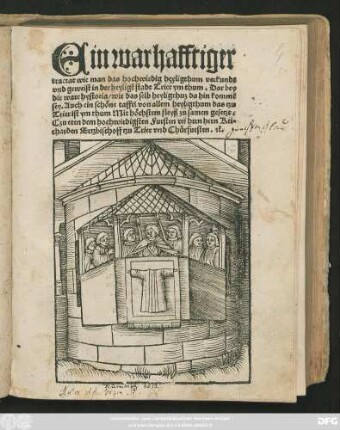 Ein warhafftiger
tractat wie man das hochwirdig heyligthum verkundt
vnd geweist in der heyligen stadt Trier ym thum. Dar bey
die ware hystoria / wie das selb heyligthum da hin kommē
sey. Auch ein schöne taffel von allem heyligthum das zu
Trier ist ym thum Mit höchstem fleyß zu samen gesetzt.
Tzu eren dem hochwirdigsten Fursten vñ hern hern Rei-
charden Ertzbischoff zu Trier vnd Chürfursten. ꝛc.
DFG